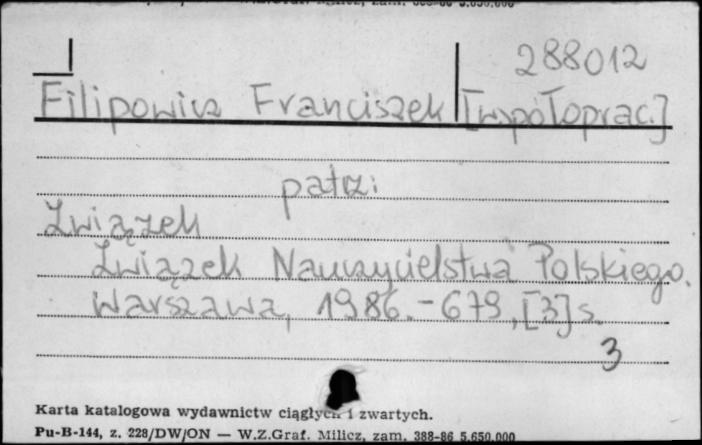 288012
Filipowicz Franciszek [współoprac.]
patrz:
Związek
Związek Nauczycielstwa Polskiego.
Warszawa, 1986. - 679, [3] s.
3
Karta katalogowa wydawnictw ciągłych i zwartych.
Pu-B-144, z. 228/DW/ON — W.Z.Graf. Milicz, zam. 388-86 5.650.000